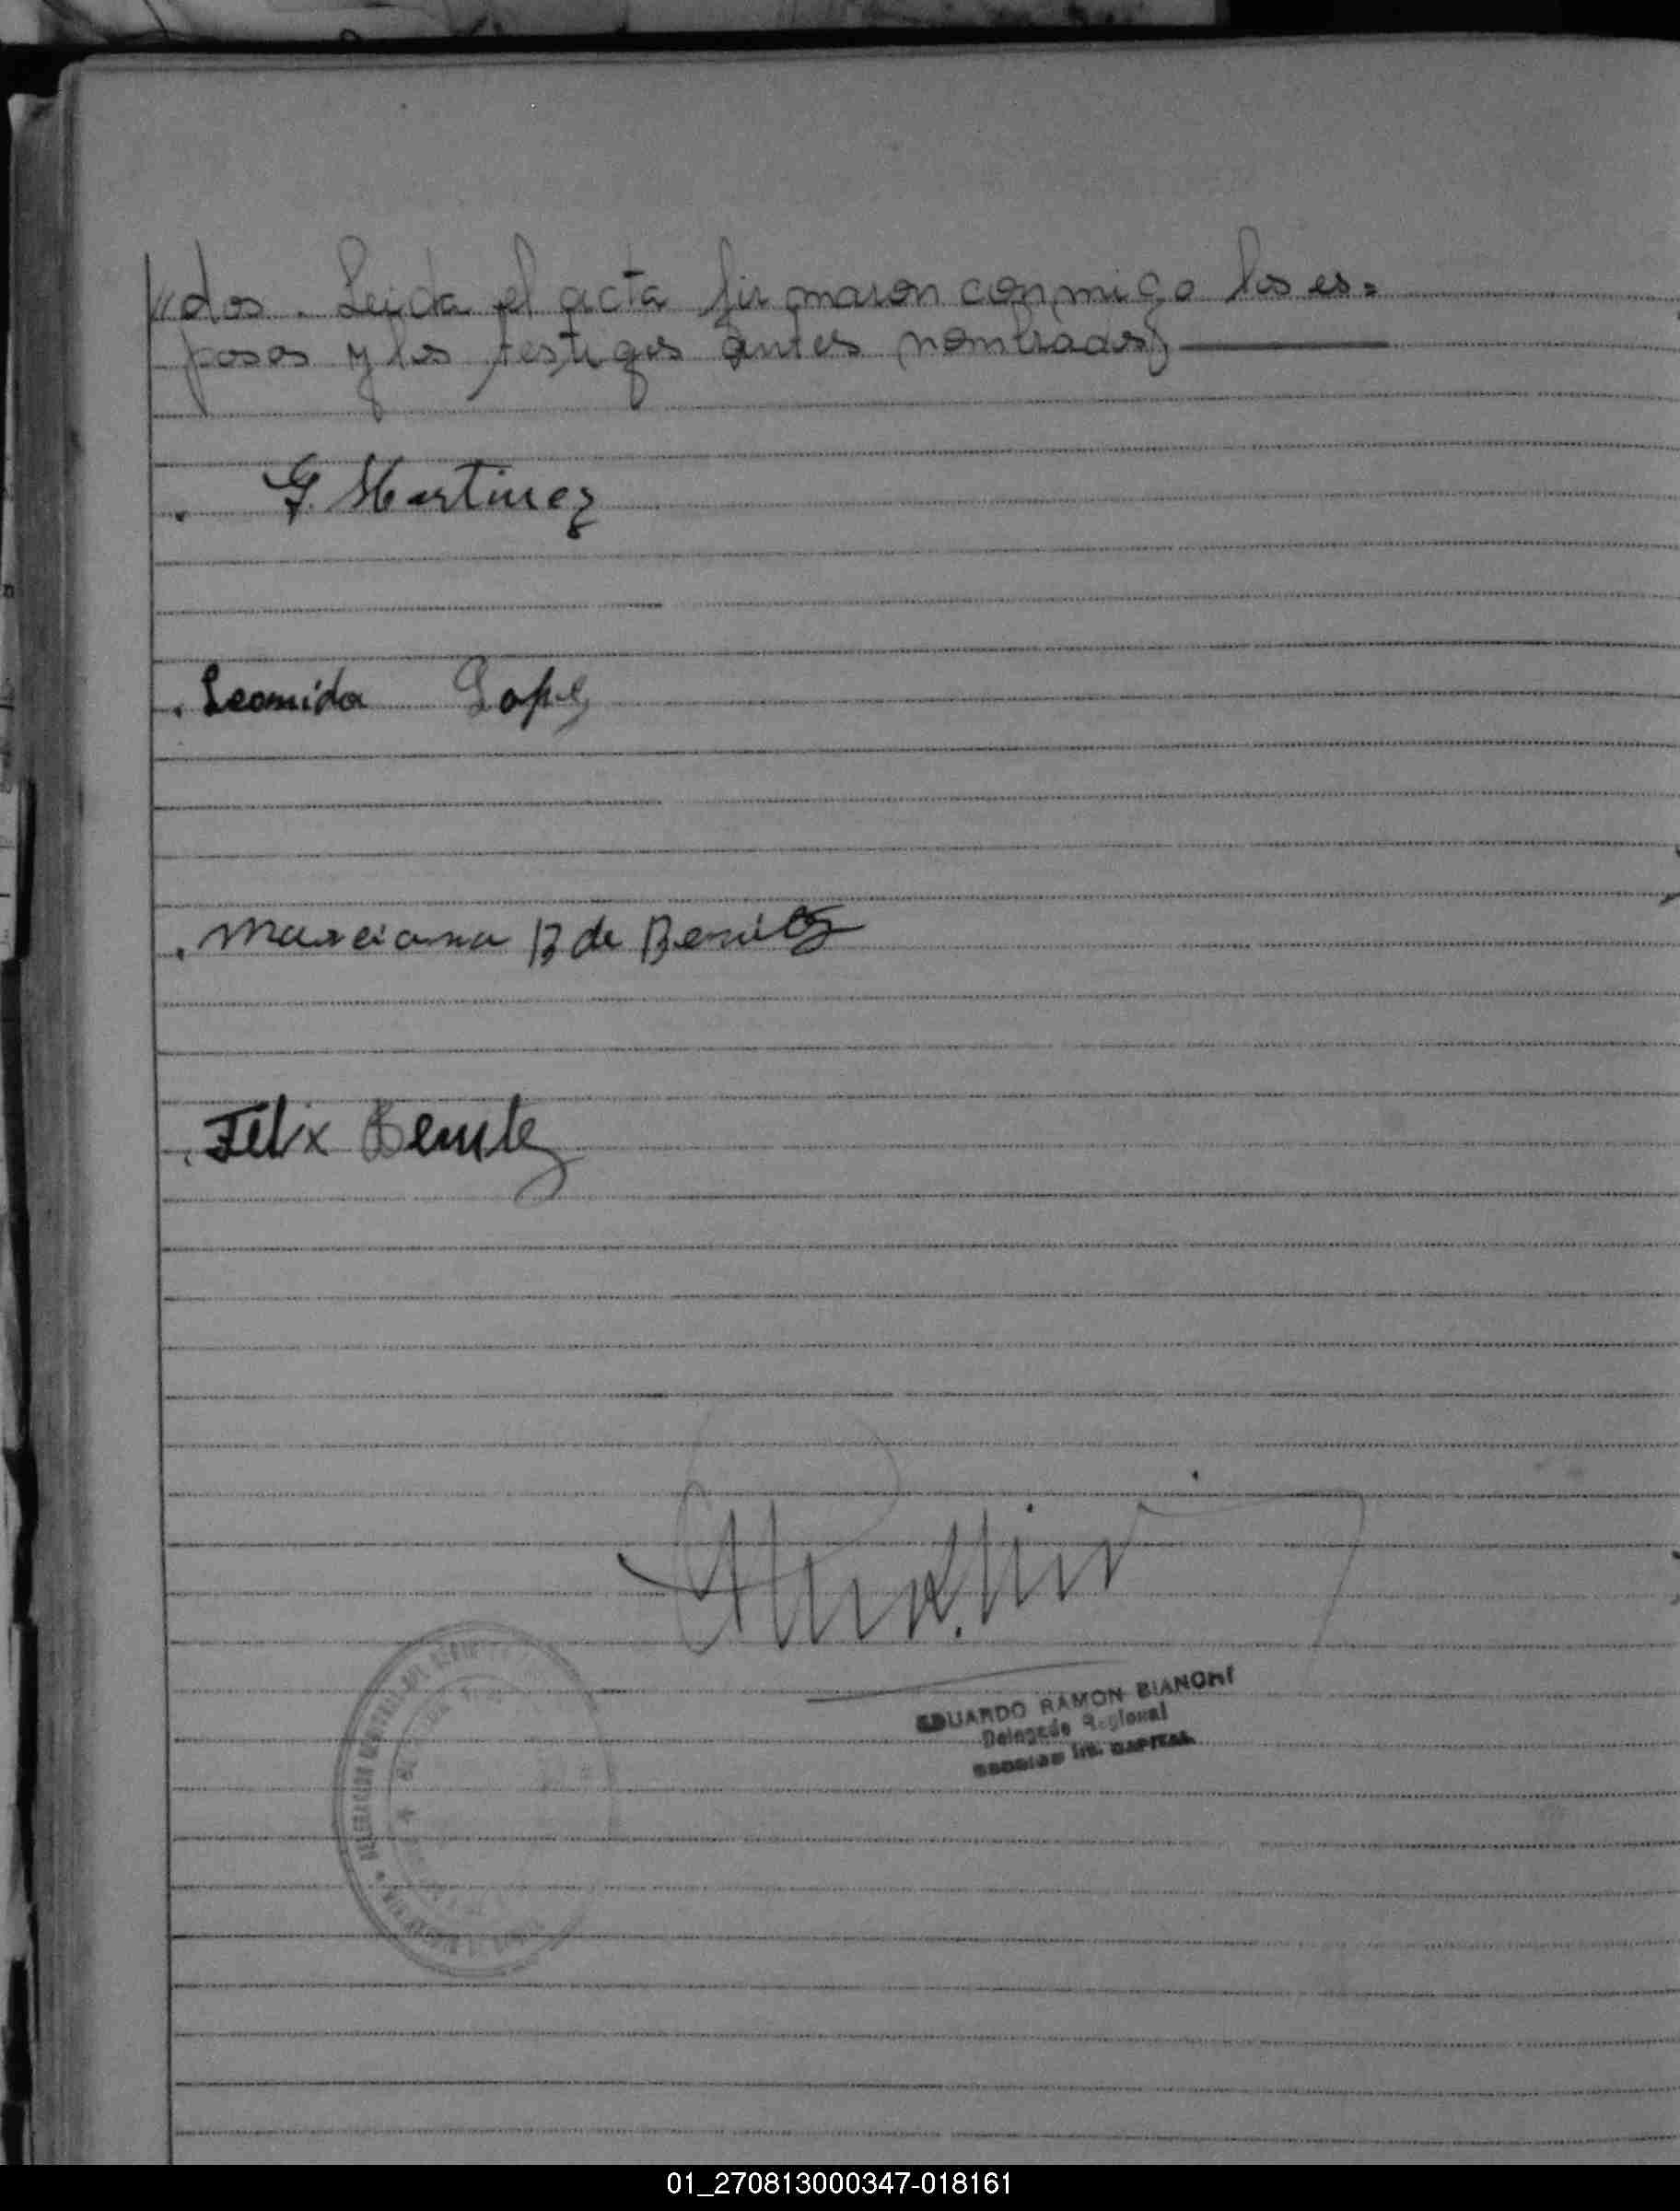 //dos. Leida el acta firmaron conmigo los es=
posos y los testigos antes nombrados)
G. Martinez
Leonida Lopez
Marciana B de Benitez
Felix Benitez
EDUARDO RAMON BIANCHI
Delegado Regional
CAPITAL
01_270813000347-018161